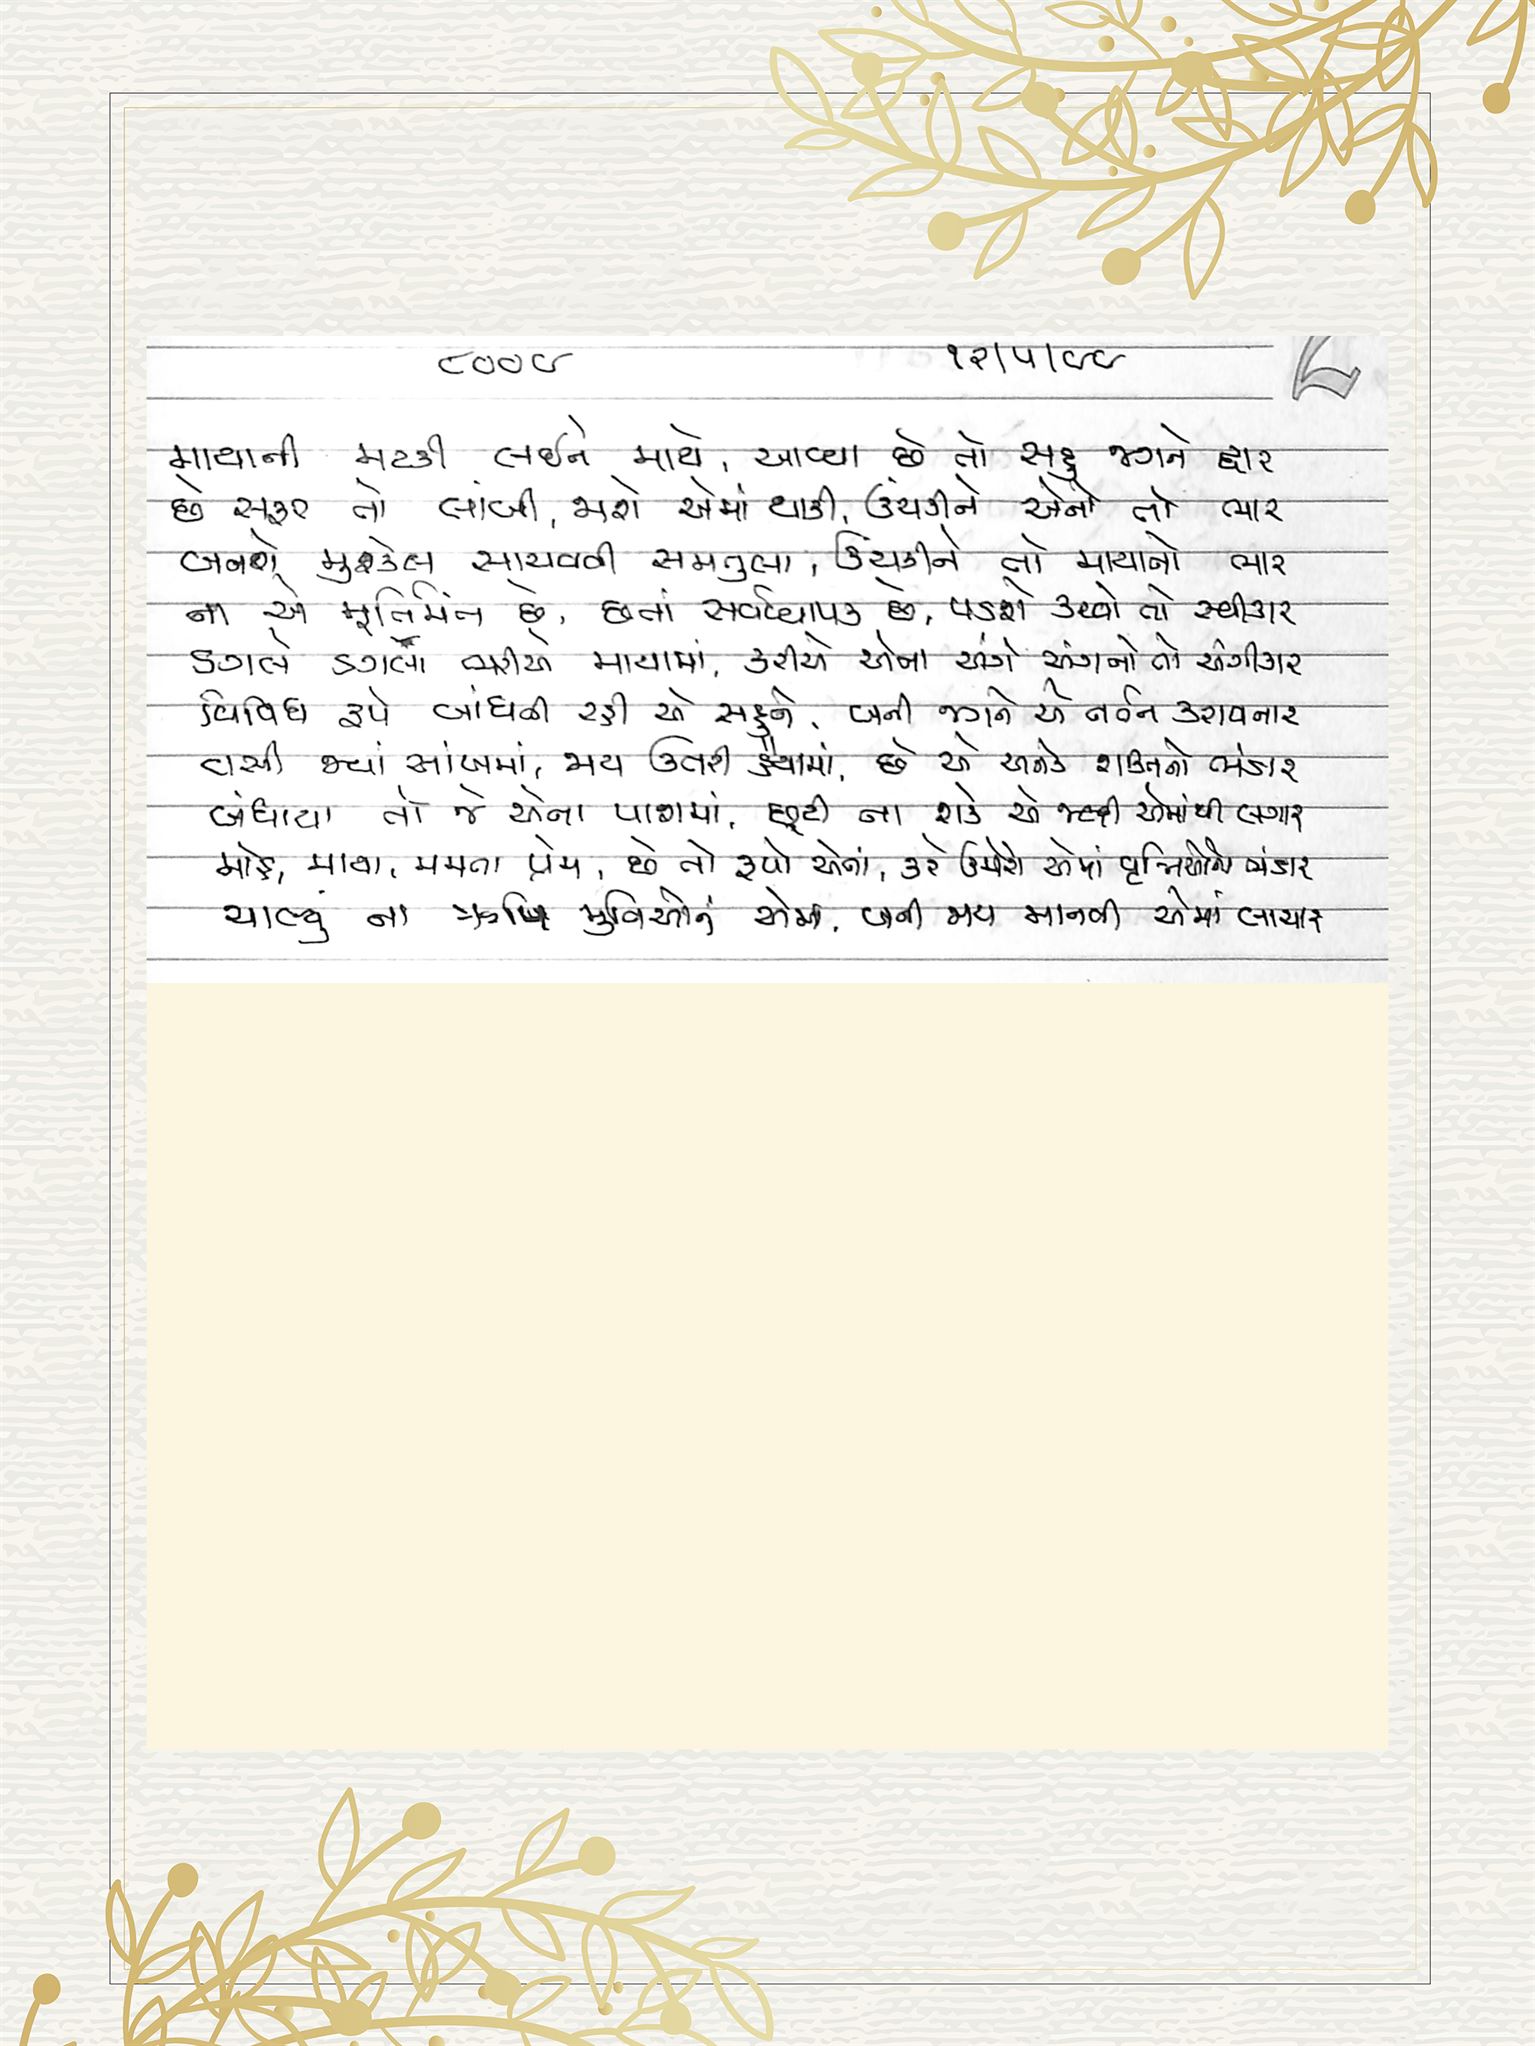 ૮૦૦૮ ૧૨/૫/૯૯
માયાની મટકી લઈને માથે, આવ્યા છે તો સહુ જગને દ્વાર
છે સફર તો લાંબી, જાશે એમાં થાકી, ઉંચકીને એનો તો ભાર
બનશે મુશ્કેલ સાચવવી સમતુલા, ઉંચકીને તો માયાનો ભાર
ના એ મૂર્તિમંત છે, છતાં સર્વવ્યાપક છે, પડશે કરવો તો સ્વીકાર
ડગલે ડગલાં ભરીએ માયામાં, કરીએ એના અંગે અંગનો તો અંગીકાર
વિવિધ રૂપે બાંધળી રહી એ સહુને, બની જગને એ નર્તન કરાવનાર
વસી જ્યાં આંખમાં, જાય ઉતરી હૈયામાં, છે એ અનેક શક્તિનો ભંડાર
બંધાયા તો જે એના પાશમાં, છૂટી ના શકે એ જલ્દી એમાંથી લગાર
મોહ, માયા, મમતા પ્રેમ, છે તો રૂપો એનાં, કરે ઉમેરો એમાં વૃત્તિઓનો ભંડાર
ચાલ્યું ના ઋષિ મુનિઓનું એમાં, બની જાય માનવી એમાં લાચાર